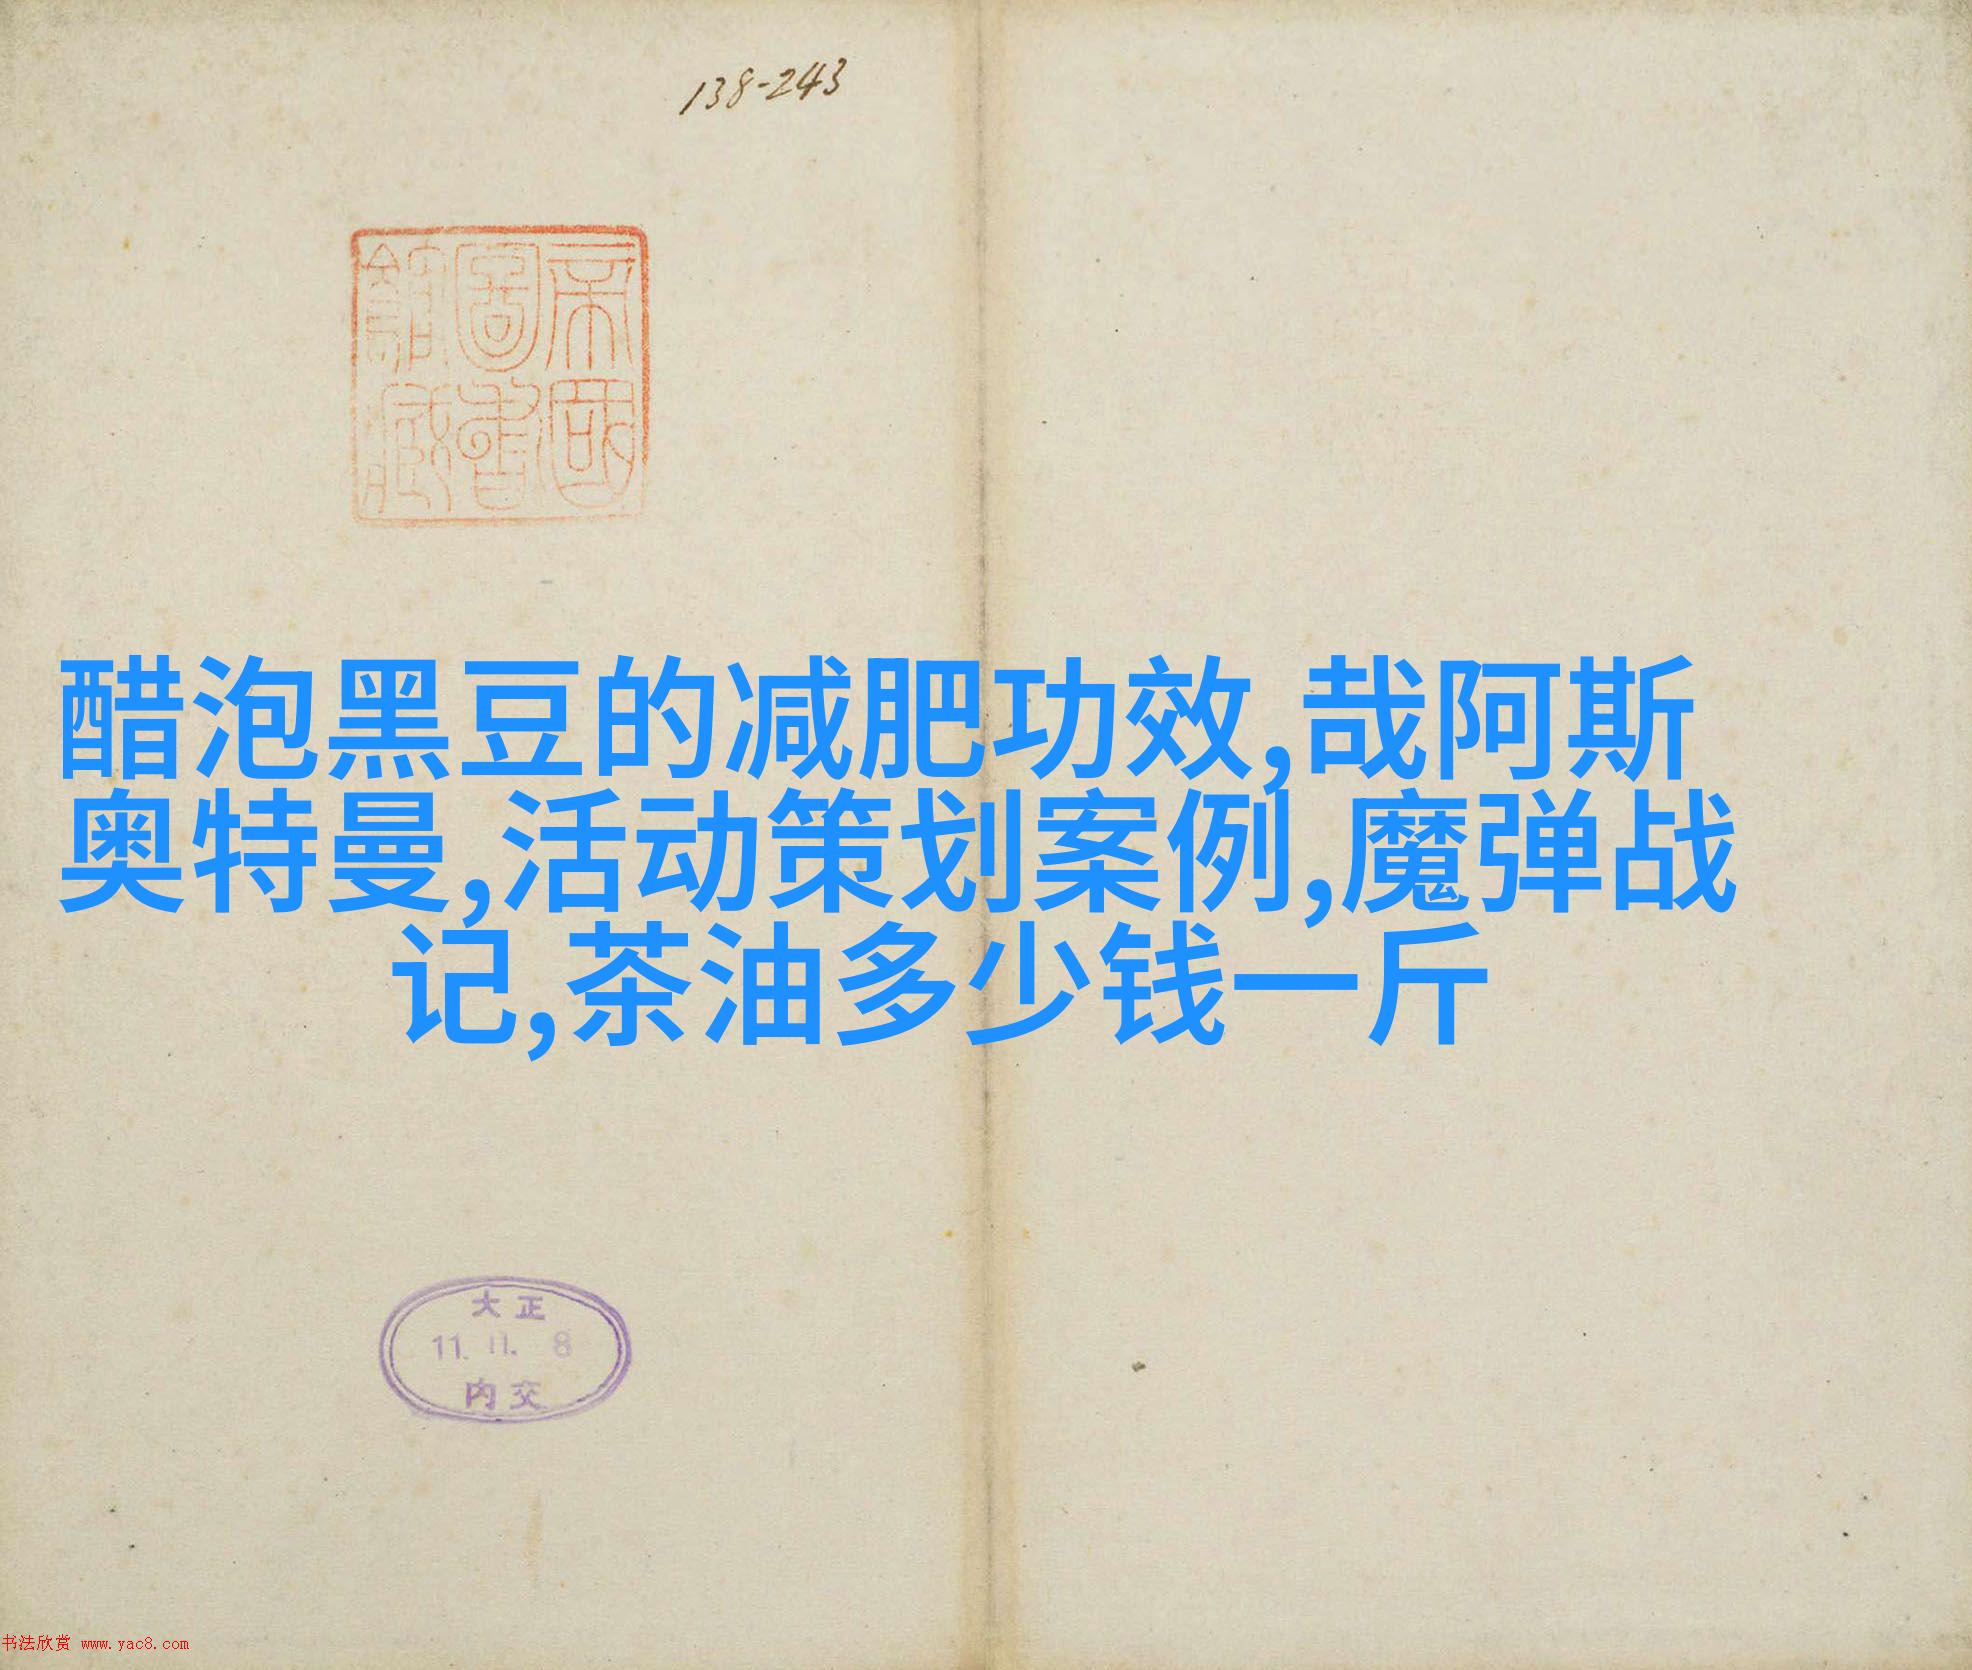 138-243
帝國
圖書
館藏
醋泡黑豆的减肥功效,哉阿斯
奥特曼,活动策划案例,魔弹战
记,茶油多少钱一斤
大正
11. 11. 8
内交
书法欣赏 www.yac8.com